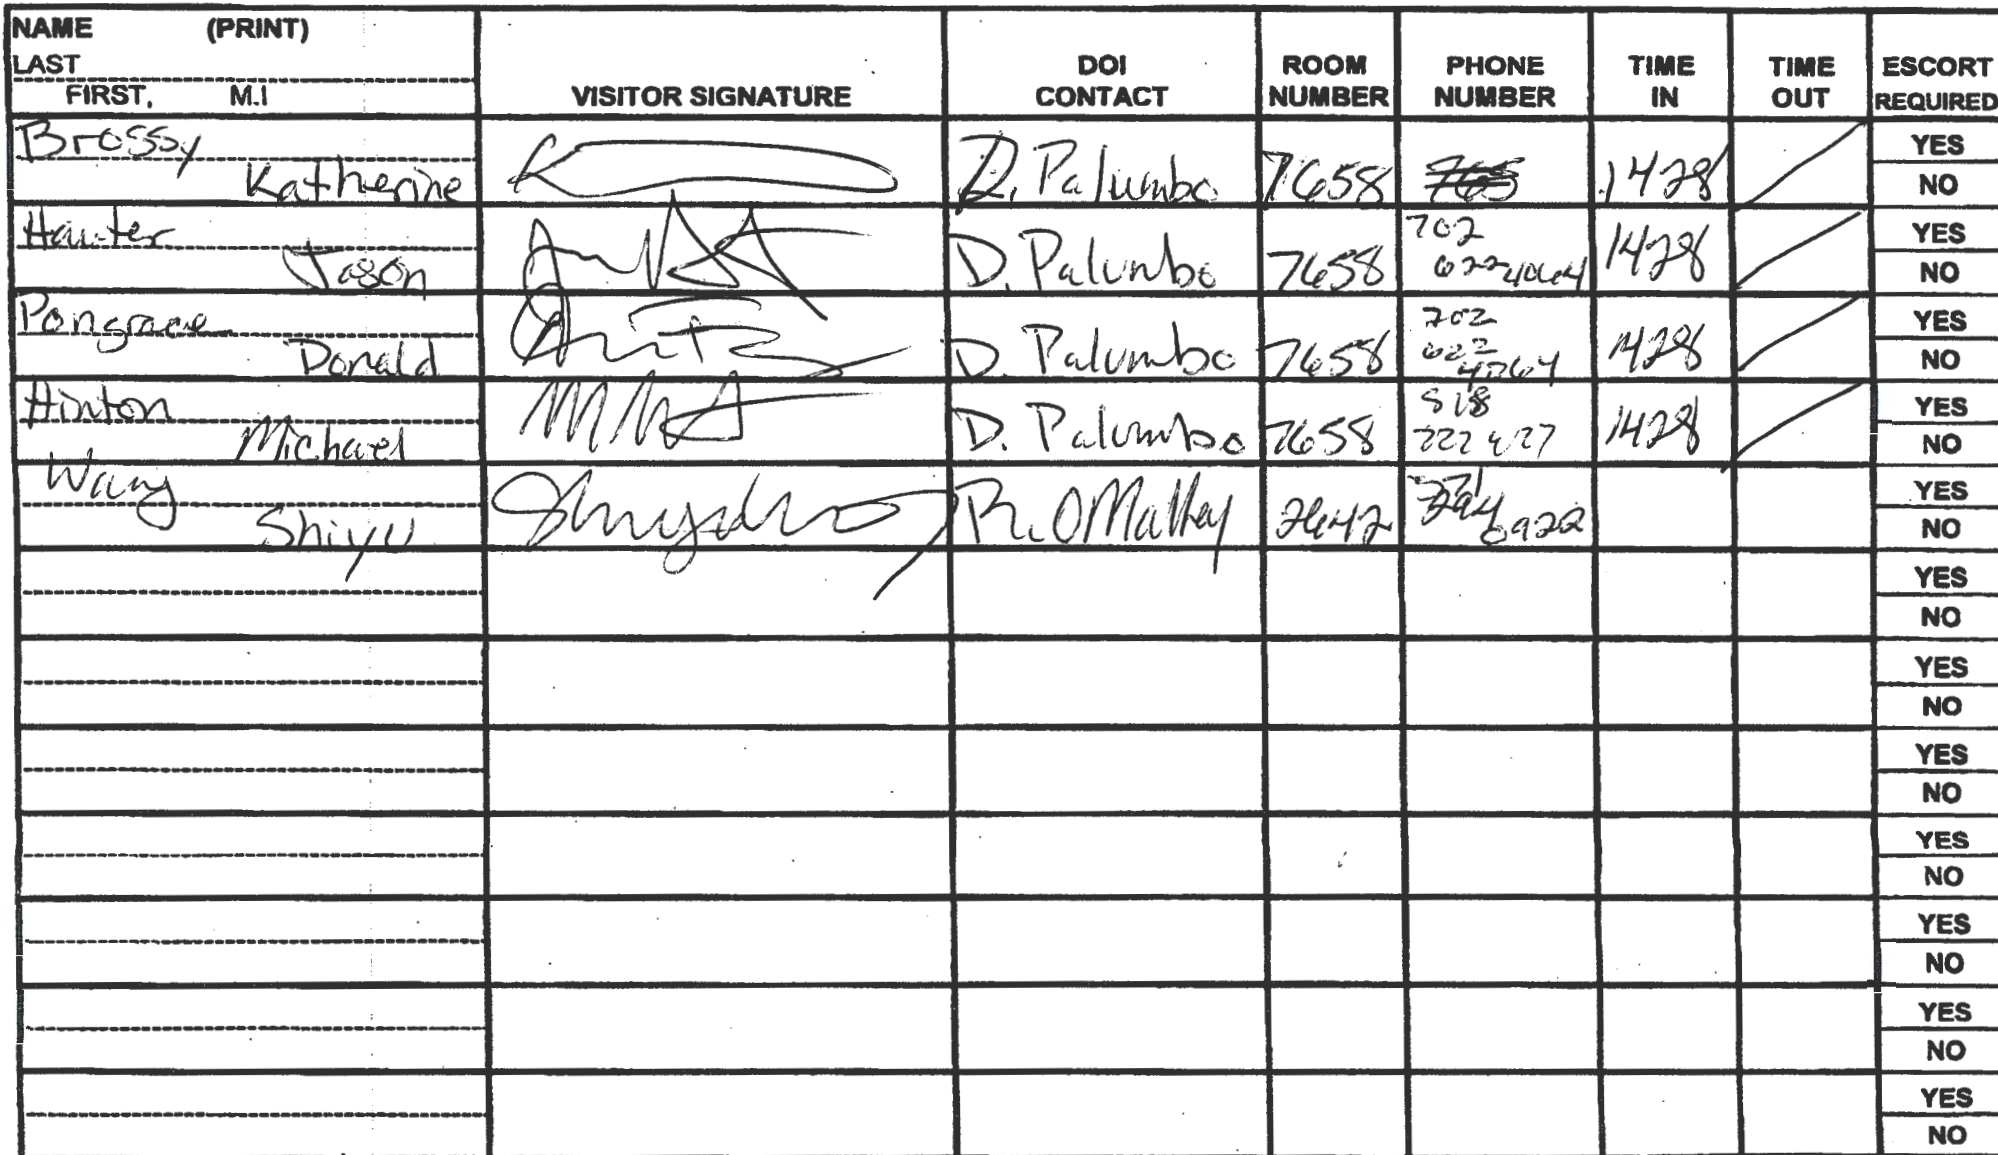 NAME (PRINT)
LAST
FIRST, M.I
VISITOR SIGNATURE
DOI CONTACT
ROOM NUMBER
PHONE NUMBER
TIME IN
TIME OUT
ESCORT REQUIRED
Brossy
Katherine
D. Palumbo 7658 1428
YES
NO
Hauter
Jason
D. Palumbo 7658 702 622 4064 1428
YES
NO
Pongrace
Donald
D. Palumbo 7658 702 622 4064 1428
YES
NO
Hinton
Michael
D. Palumbo 7658 518 1428
YES
NO
Wang
Shiyu
R. OMalley 2642 0922
YES
NO
YES
NO
YES
NO
YES
NO
YES
NO
YES
NO
YES
NO
YES
NO